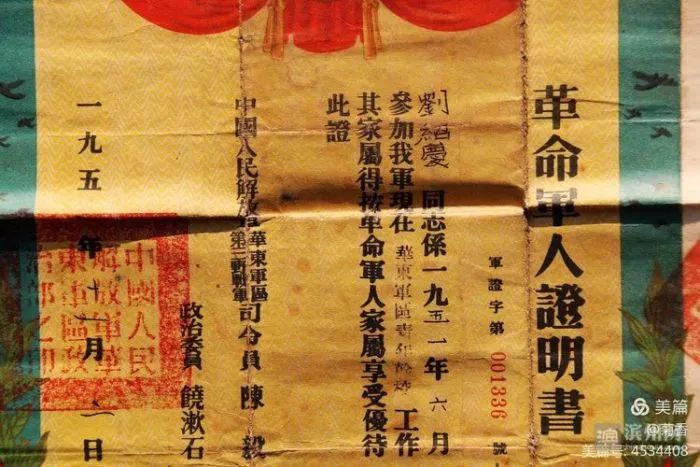 革命軍人證明書
軍證字第 001336 號
劉紹慶 同志係一九五一年六月
參加我軍現在 華東軍區青年幹校 工作
其家屬得按革命軍人家屬享受優待
此證
中國人民解放軍華東軍區
第三野戰軍
司令員 陳毅
政治委員 饒漱石
一九五 年十一月 日
中國人民
解放軍華
東軍區政
治部之印
美篇
滨州网
美篇号: 4534408